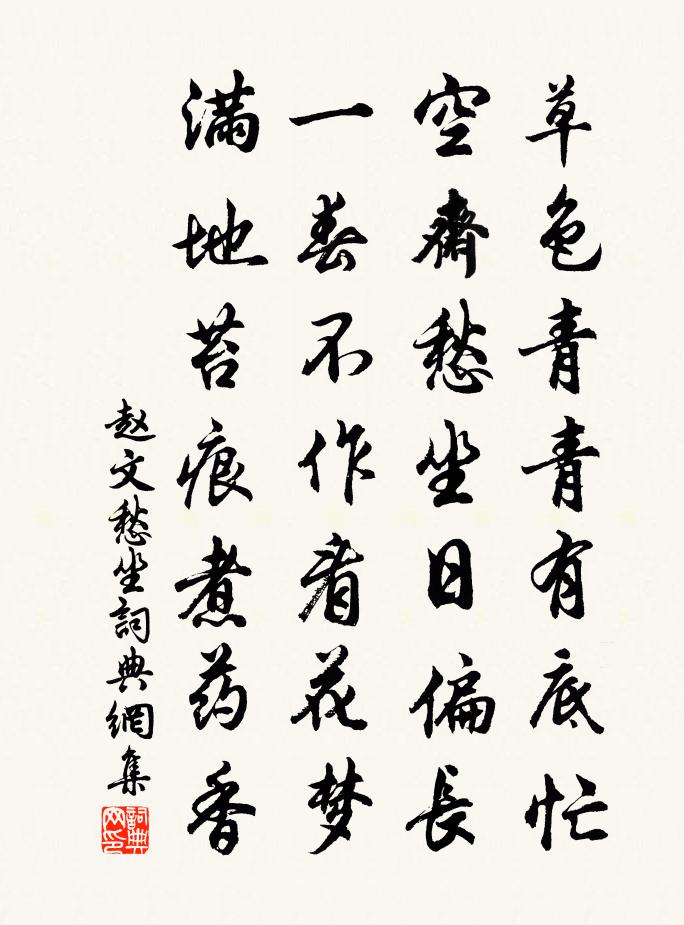 草色青青有底忙
空齋愁坐日偏長
一春不作看花梦
满地苔痕煮药香
赵文愁坐詞典網集
詞典网印